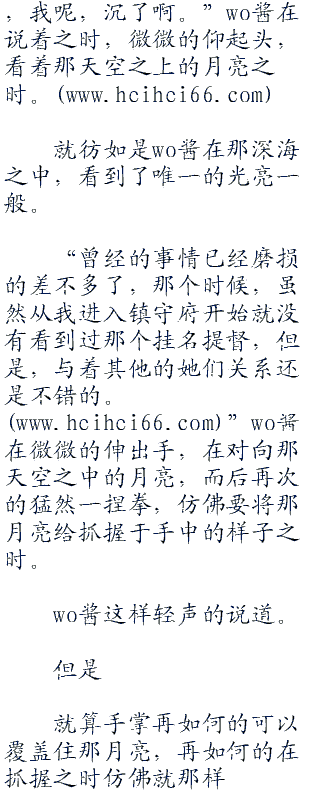 ，我呢，沉了啊。”wo酱在
说着之时，微微的仰起头，
看着那天空之上的月亮之
时。(www.hcihci66.com)
就彷如是wo酱在那深海
之中，看到了唯一的光亮一
般。
“曾经的事情已经磨损
的差不多了，那个时候，虽
然从我进入镇守府开始就没
有看到过那个挂名提督，但
是，与着其他的她们关系还
是不错的。
(www.hcihci66.com)”wo酱
在微微的伸出手，在对向那
天空之中的月亮，而后再次
的猛然一捏拳，仿佛要将那
月亮给抓握于手中的样子之
时。
wo酱这样轻声的说道。
但是
就算手掌再如何的可以
覆盖住那月亮，再如何的在
抓握之时仿佛就那样